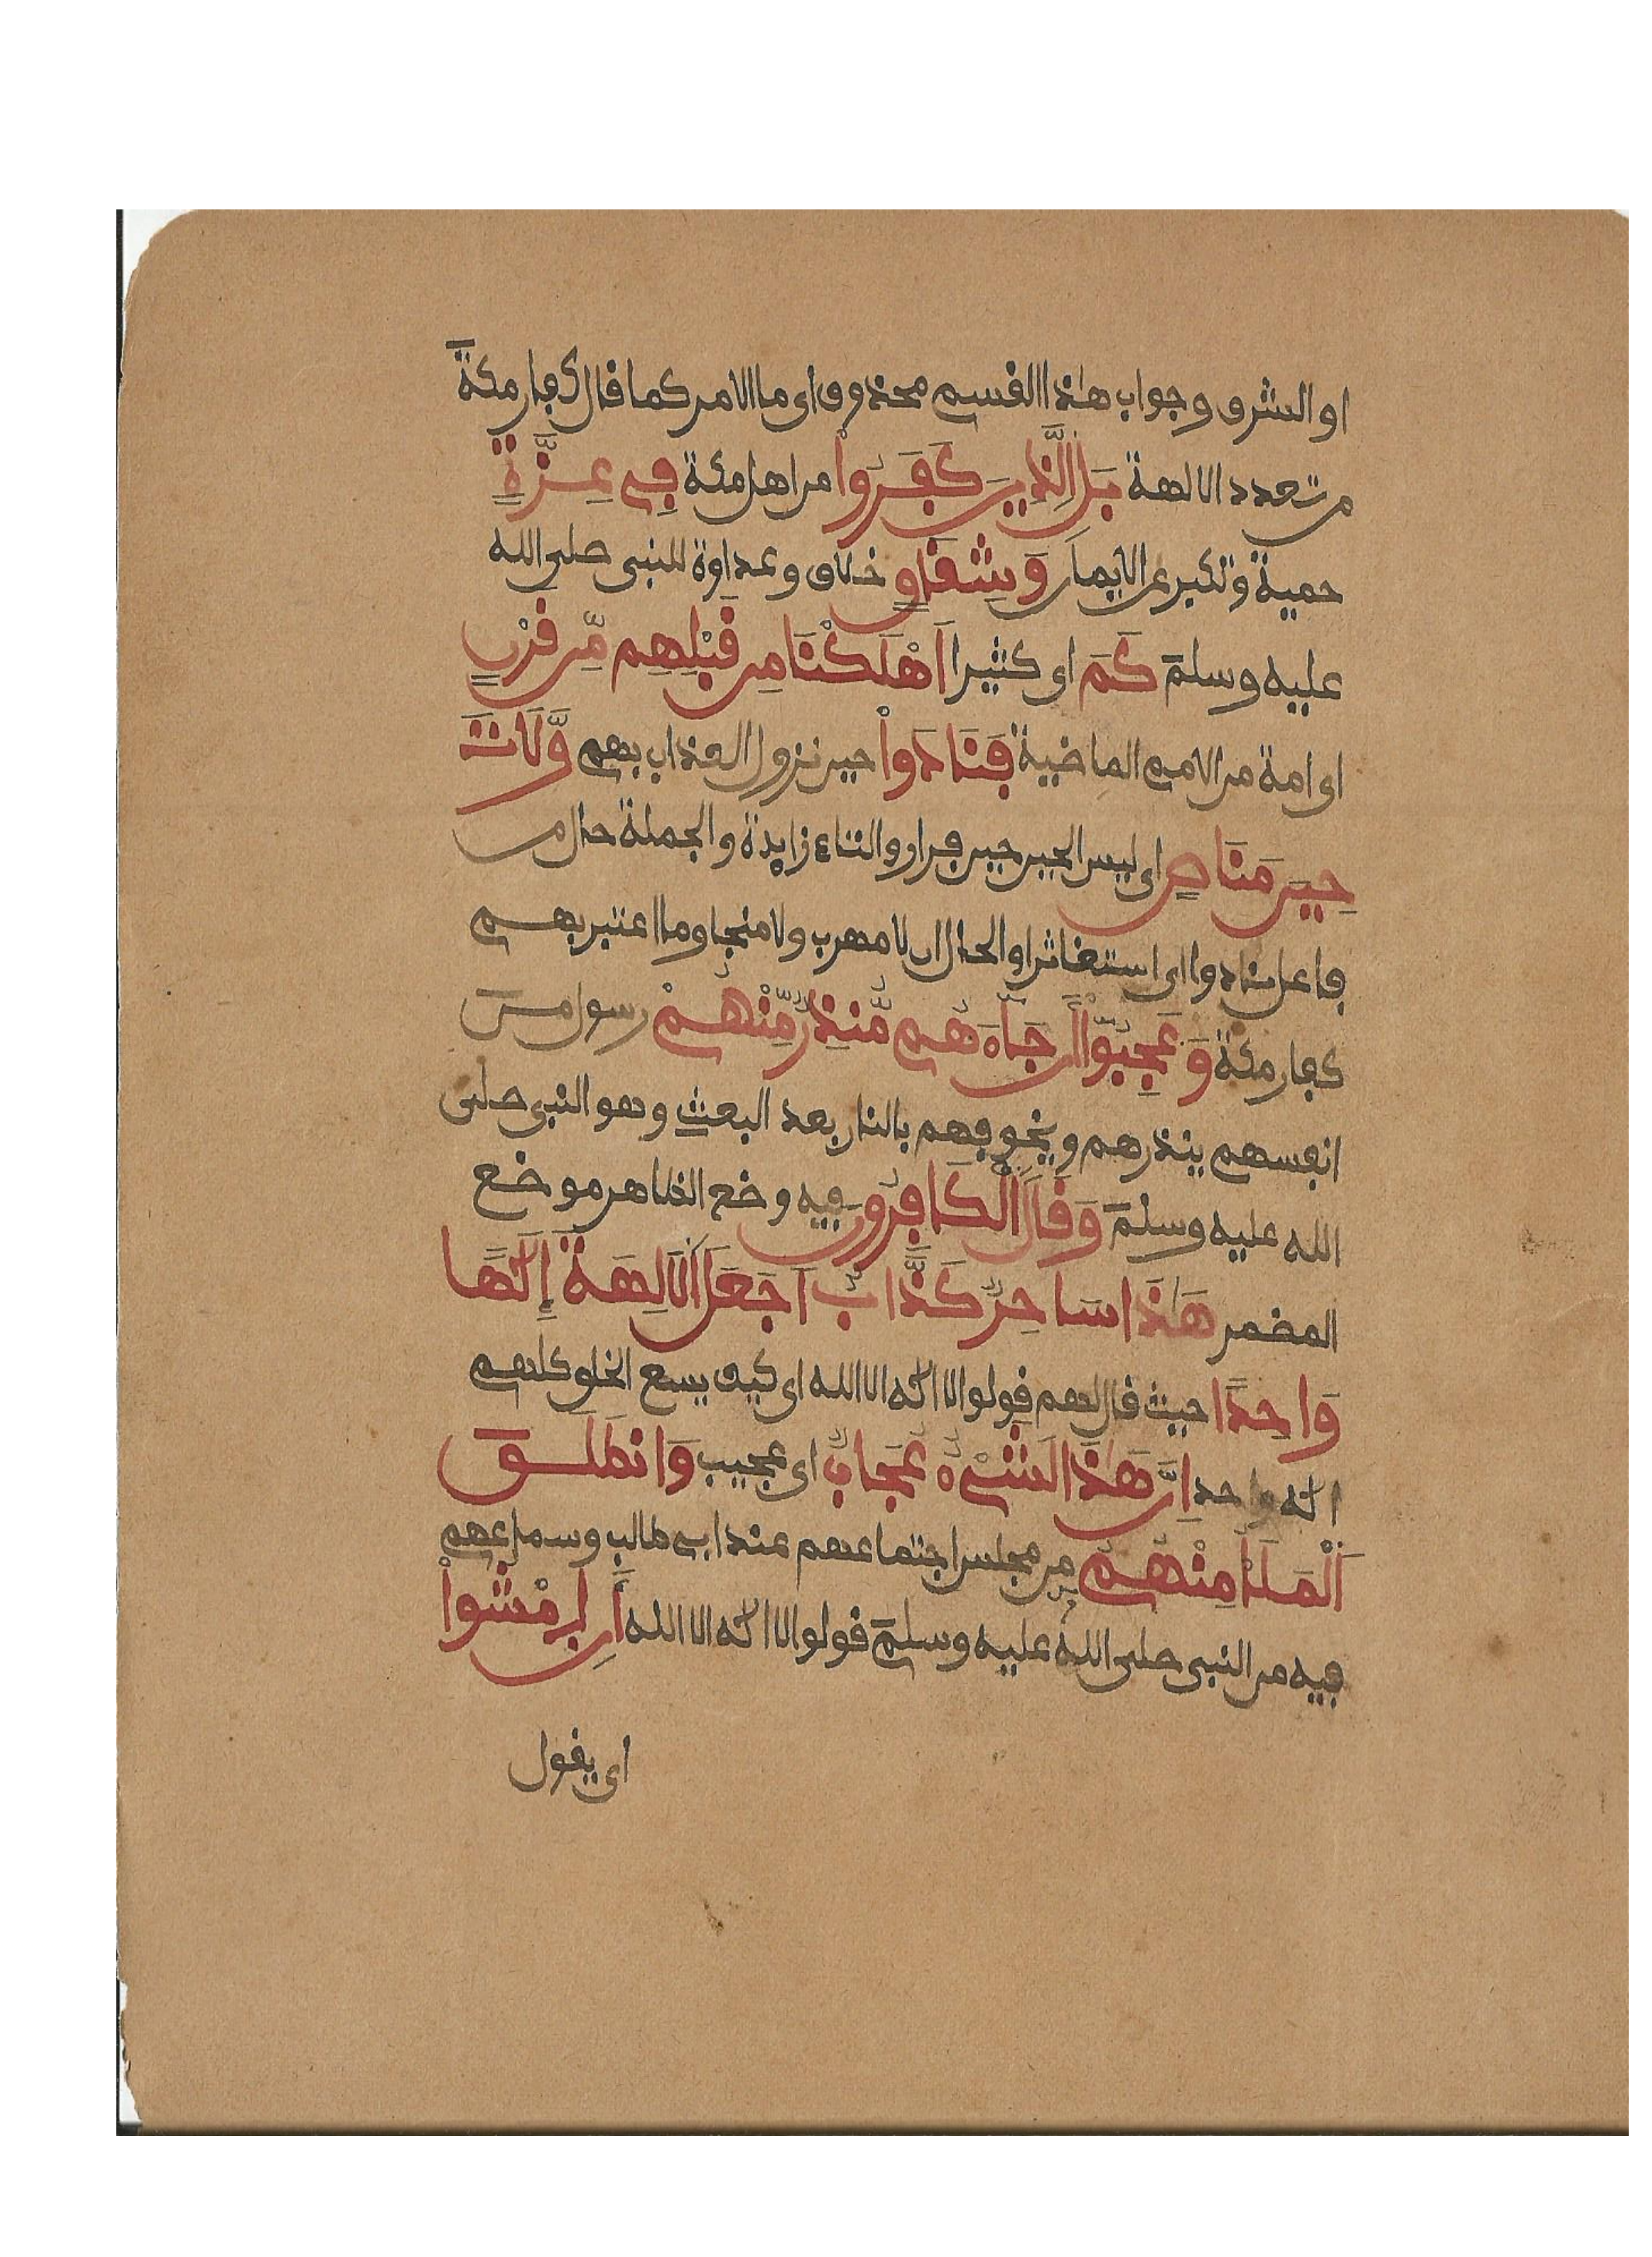 او الشرف وجواب هٰذا القسم محذوف اى ما الامر كما قال كفار مكةَ
من تعدد الالهة بَلِ الَّذِينَ كَفَرُواْ من اهل مكة فِى عِزَّةٍ
حمية وتكبر عن الايمان وَشِقَاقٍ خلاف وعداوة للنبى صلى الله
عليه وسلمَ كَمَ اى كثيرا اَهْلَكْنَا مِن قَبْلِهِم مِّن قَرْنٍ
اى امة من الامم الماضية فَنَادَواْ حين نزول العذاب بهم وَّلَاتَ
حِينَ مَنَاصٍ اى ليس الحين حين فرار والتاء زايدة والجملة حال من
فاعل نادوا اى استغاثرا والحال ان لا مهرب ولا منجا وما اعتبر بهم
كفار مكة وَعَجِبُوٓاْ أَن جَآءَهُم مُّنذِرٌ مِّنْهُمْ رسول منَ
انفسهم ينذرهم ويخوفهم بالنار بعد البعث وهو النبى صلى
الله عليه وسلمَ وَقَالَ اَلْكَافِرُونَ فيه وضع الظاهر موضع
المضمر هَٰذَا سَاحِرٌ كَذَّابٌ اَجَعَلَ اَلَالِهَةَ إِلَٰهًا
وَاحِدًا حيث قال لهم قولوا لا اله الا الله اى كيف يسع الخلق كلهم
اله واحد اِنَّ هَٰذَا لَشَىْءٌ عُجَابٌ اى عجيب وَانطَلَقَ
اَلْمَلَأُ مِنْهُمُ من مجلس اجتماعهم عند ابى طالب وسماعهم
فيه من النبى صلى الله عليه وسلمَ قولوا لا اله الا الله أَنِ اِمْشُواْ
اى يقول